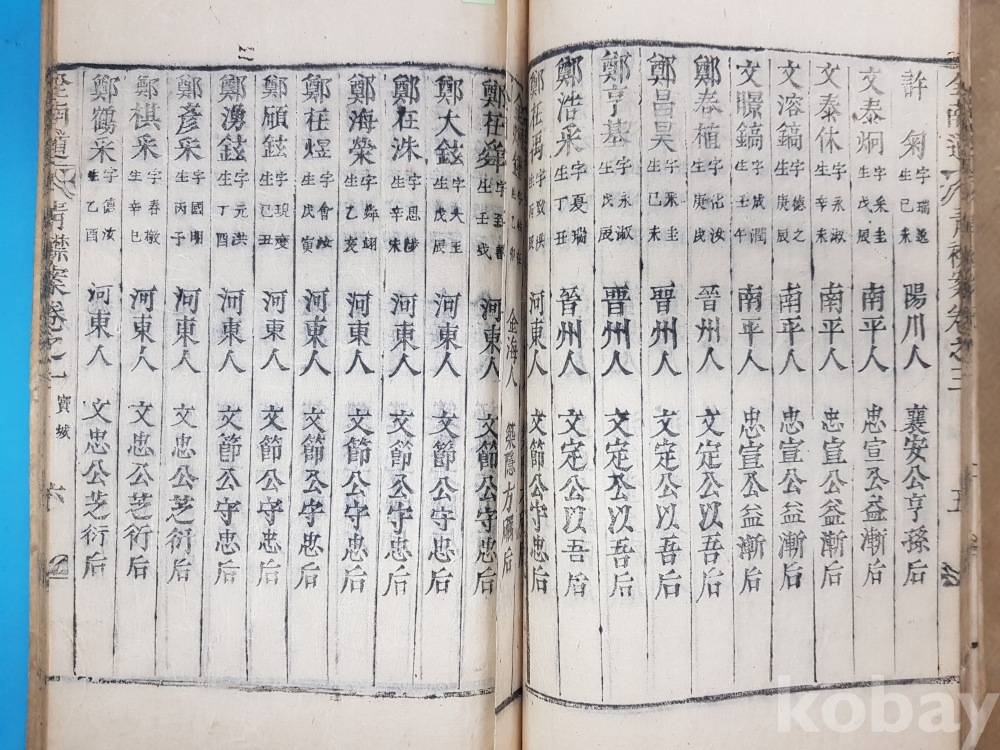 許 匊 字瑞益 生己未 陽川人 襄安公亨孫后
文泰炯 字采圭 生戊辰 南平人 忠宣公益漸后
文泰休 字永淑 生辛未 南平人 忠宣公益漸后
文溶鎬 字德之 生庚辰 南平人 忠宣公益漸后
文暻鎬 字成潤 生壬午 南平人 忠宣公益漸后
鄭春植 字化汝 生庚戌 晉州人 文定公以吾后
鄭昌昊 生己未 晉州人 文定公以吾后
鄭亨基 字永淑 生戊辰 晉州人 文定公以吾后
鄭浩采 字夏瑞 生丁丑 晉州人 文定公以吾后
鄭在禹 字敬 生戊辰 河東人 文節公守忠后
金海人 築隱方礪后
鄭在舜 字至善 生壬戌 河東人 文節公守忠后
鄭大鉉 字大玉 生戊辰 河東人 文節公守忠后
鄭在洙 字思 生辛未 河東人 文節公守忠后
鄭海榮 字舜翊 生乙亥 河東人 文節公守忠后
鄭在煜 字會汝 生戊寅 河東人 文節公守忠后
鄭頎鉉 字現 生己丑 河東人 文節公守忠后
鄭湧鉉 字元洪 生丁酉 河東人 文節公守忠后
鄭彥采 字國 生丙子 河東人 文忠公芝衍后
鄭棋采 字春 生辛巳 河東人 文忠公芝衍后
鄭鶴采 字德汝 生乙酉 河東人 文忠公芝衍后
全南道 靑襟案卷之一 寶城 六
kobay